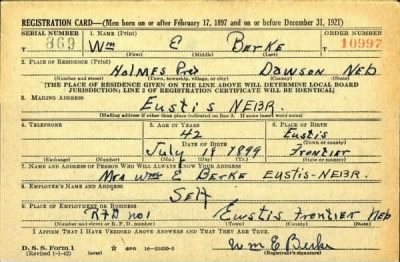 REGISTRATION CARD—(Men born on or after February 17, 1897 and on or before December 31, 1921)
SERIAL NUMBER 1. NAME (Print) ORDER NUMBER
869 Wm E Berke 10997
(First) (Middle) (Last)
2. PLACE OF RESIDENCE (Print)
Holmes Dawson Neb
(Number and street) (Town, township, village, or city) (County) (State)
[THE PLACE OF RESIDENCE GIVEN ON THE LINE ABOVE WILL DETERMINE LOCAL BOARD
JURISDICTION; LINE 2 OF REGISTRATION CERTIFICATE WILL BE IDENTICAL]
3. MAILING ADDRESS
Eustis NEBR.
[Mailing address if other than place indicated on line 2. If same insert word same]
4. TELEPHONE 5. AGE IN YEARS 6. PLACE OF BIRTH
42 Eustis
DATE OF BIRTH (Town or county)
July 18 1899 Frontier
(Exchange) (Number) (Mo.) (Day) (Yr.) (State or country)
7. NAME AND ADDRESS OF PERSON WHO WILL ALWAYS KNOW YOUR ADDRESS
Mrs Wm E Berke Eustis-NEBR.
8. EMPLOYER'S NAME AND ADDRESS
Self
9. PLACE OF EMPLOYMENT OR BUSINESS
RFD no 1 Eustis Frontier Neb
(Number and street or R. F. D. number) (Town) (County) (State)
I AFFIRM THAT I HAVE VERIFIED ABOVE ANSWERS AND THAT THEY ARE TRUE.
D. S. S. Form 1 Wm E Berke
(Revised 1-1-42) (Registrant's signature)